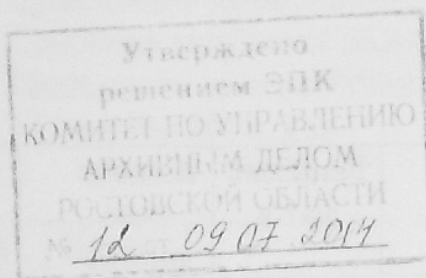 Утверждено
решением ЭПК
КОМИТЕТ ПО УПРАВЛЕНИЮ
АРХИВНЫМ ДЕЛОМ
РОСТОВСКОЙ ОБЛАСТИ
№ 12 от 09 07 2014